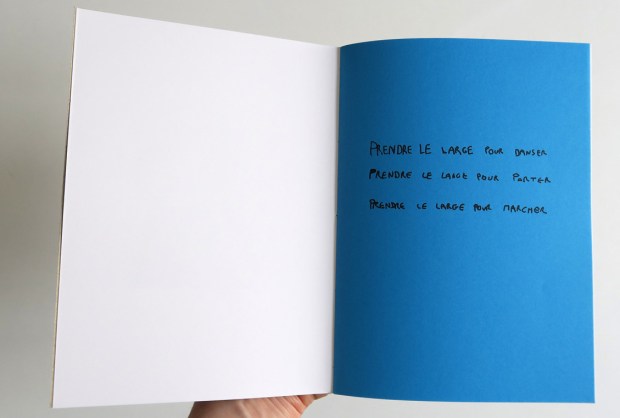 PRENDRE LE LARGE POUR DANSER
PRENDRE LE LARGE POUR PORTER
PRENDRE LE LARGE POUR MARCHER